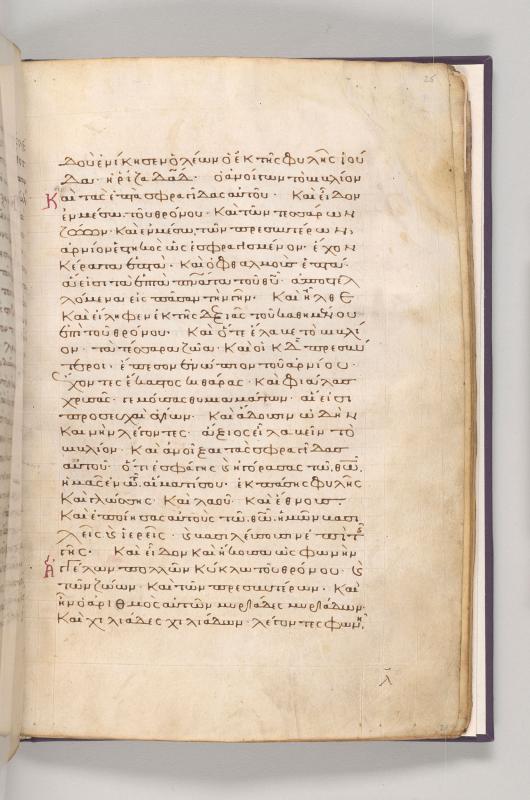 26
δοὺ ἐνίκησεν ὁ λέων ὁ ἐκ τῆς φυλῆς ἰού
δα· ἡ ῥίζα δᾱδ· ὁ ἀνοίγων τὸ βιβλίον
Καὶ τὰς ἑπτὰ σφραγίδας αὐτοῦ· Καὶ εἶδον
ἐν μέσω τοῦ θρόνου· Καὶ τῶν τεσσάρων
ζώων· Καὶ ἐν μέσω τῶν πρεσβυτέρων,
ἀρνίον ἑστηκὸς ὡς ἐσφραγισμένον· ἔχον
Κέρατα ἑπτὰ· Καὶ ὀφθαλμοὺς ἑπτά·
ἅ εἰσι τὰ ἑπτὰ πν̅ατα τοῦ θυ̅· ἀποστελ
λόμενα εἰς πᾶσαν τὴν γῆν· Καὶ ἦλθε
Καὶ εἴληφεν ἐκ τῆς δεξιᾶς τοῦ καθημένου
ἐπὶ τοῦ θρόνου· Καὶ ὅτε ἔλαβε τὸ βιβλί
ον· τὰ τέσσαρα ζῶα· Καὶ οἱ ΚΔ πρεσβύ
τεροι· ἔπεσον ἐνώπιον τοῦ ἀρνίου·
ἔχοντες ἕκαστος κιθάρας· Καὶ φιάλας
χρυσᾶς· γεμούσας θυμιαμάτων· αἵ εἰσι
προσευχαὶ ἁγίων· Καὶ ἄδουσιν ὠδὴν
Καινὴν λέγοντες· ἄξιος εἶ λαβεῖν τὸ
βιβλίον· Καὶ ἀνοῖξαι τὰς σφραγίδας
αὐτοῦ· ὅτι ἐσφάγης ϗ ἠγόρασας τῶ θω̅·
ἡμᾶς ἐν τῶ αἵματί σου· ἐκ πάσης φυλῆς
Καὶ γλώσσης· Καὶ λαοῦ· Καὶ ἔθνους·
Καὶ ἐποίησας αὐτοὺς τῶ θω̅ ἡμῶν βασι
λεῖς ϗ ἱερεῖς· ϗ βασιλεύσουσιν ἐπὶ τῆς
γῆς· Καὶ εἶδον Καὶ ἤκουσα ὡς φωνὴν
ἀγγέλων πολλῶν Κύκλω τοῦ θρόνου· ϗ
τῶν ζώων· Καὶ τῶν πρεσβυτέρων· Καὶ
ἦν ὁ ἀριθμὸς αὐτῶν μυριάδες μυριάδων·
Καὶ χιλιάδες χιλιάδων· λέγοντες φωνῆ